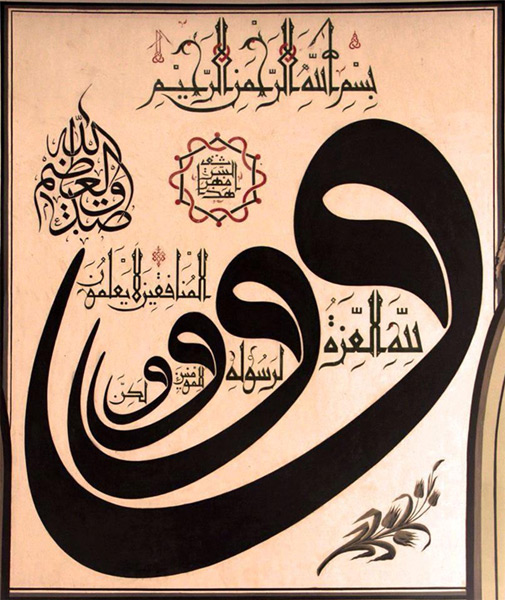 بِسْمِ اللهِ الرَّحْمٰنِ الرَّحِيْمِ
صدق الله العظيم
وَلِلّٰهِ الْعِزَّةُ
وَلِرَسُولِهِ
وَلِلْمُؤْمِنِينَ
وَلٰكِنَّ
الْمُنَافِقِينَ لَا يَعْلَمُونَ